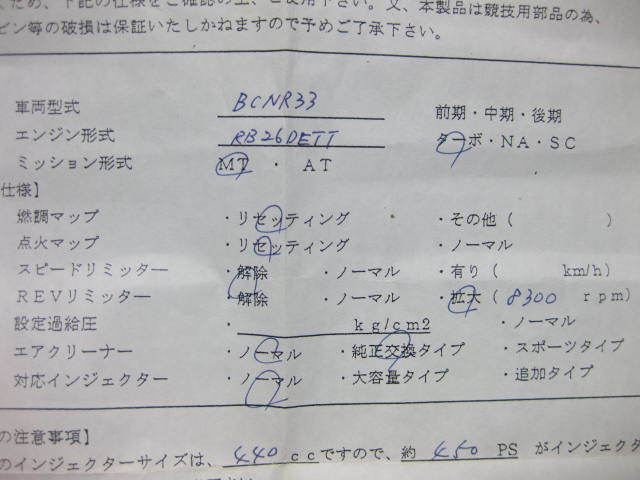 ため、下記の仕様をご確認の上、ご使用下さい。又、本製品は競技用部品の為、
ピン等の破損は保証いたしかねますので予めご了承下さい。
車両型式 BCNR33 前期・中期・後期
エンジン形式 RB26DETT ターボ・NA・SC
ミッション形式 MT ・ AT
仕様】
燃調マップ ・リセッティング ・その他（ ）
点火マップ ・リセッティング ・ノーマル
スピードリミッター ・解除 ・ノーマル ・有り（ km/h）
REVリミッター ・解除 ・ノーマル ・拡大（ 8300 rpm）
設定過給圧 ・ kg/cm2 ・ノーマル
エアクリーナー ・ノーマル ・純正交換タイプ ・スポーツタイプ
対応インジェクター ・ノーマル ・大容量タイプ ・追加タイプ
の注意事項】
のインジェクターサイズは、 440 ccですので、約 450 PS がインジェクタ